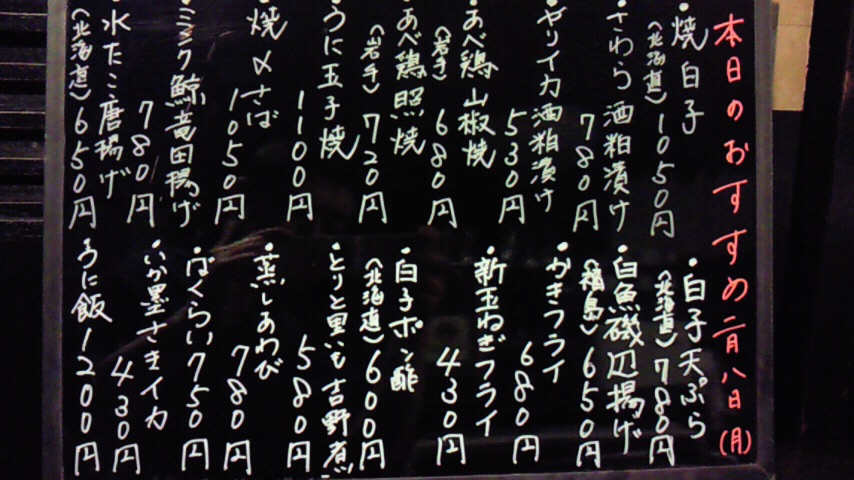 本日のおすすめ 二月八日(月)
・焼白子
(北海道)1050円
・さわら酒粕漬け
780円
・ヤリイカ酒粕漬け
530円
・あべ鶏山椒焼
(岩手)680円
・あべ鶏照焼
(岩手)720円
・うに玉子焼
1100円
・焼〆さば
1050円
・ミンク鯨竜田揚げ
780円
・水たこ唐揚げ
(北海道)650円
・白子天ぷら
(北海道)780円
・白魚磯辺揚げ
(福島)650円
・かきフライ
680円
・新玉ねぎフライ
430円
・白子ポン酢
(北海道)600円
・とりと里いも吉野煮
580円
・蒸しあわび
780円
・ばくらい750円
・いか墨さきイカ
430円
・うに飯1200円